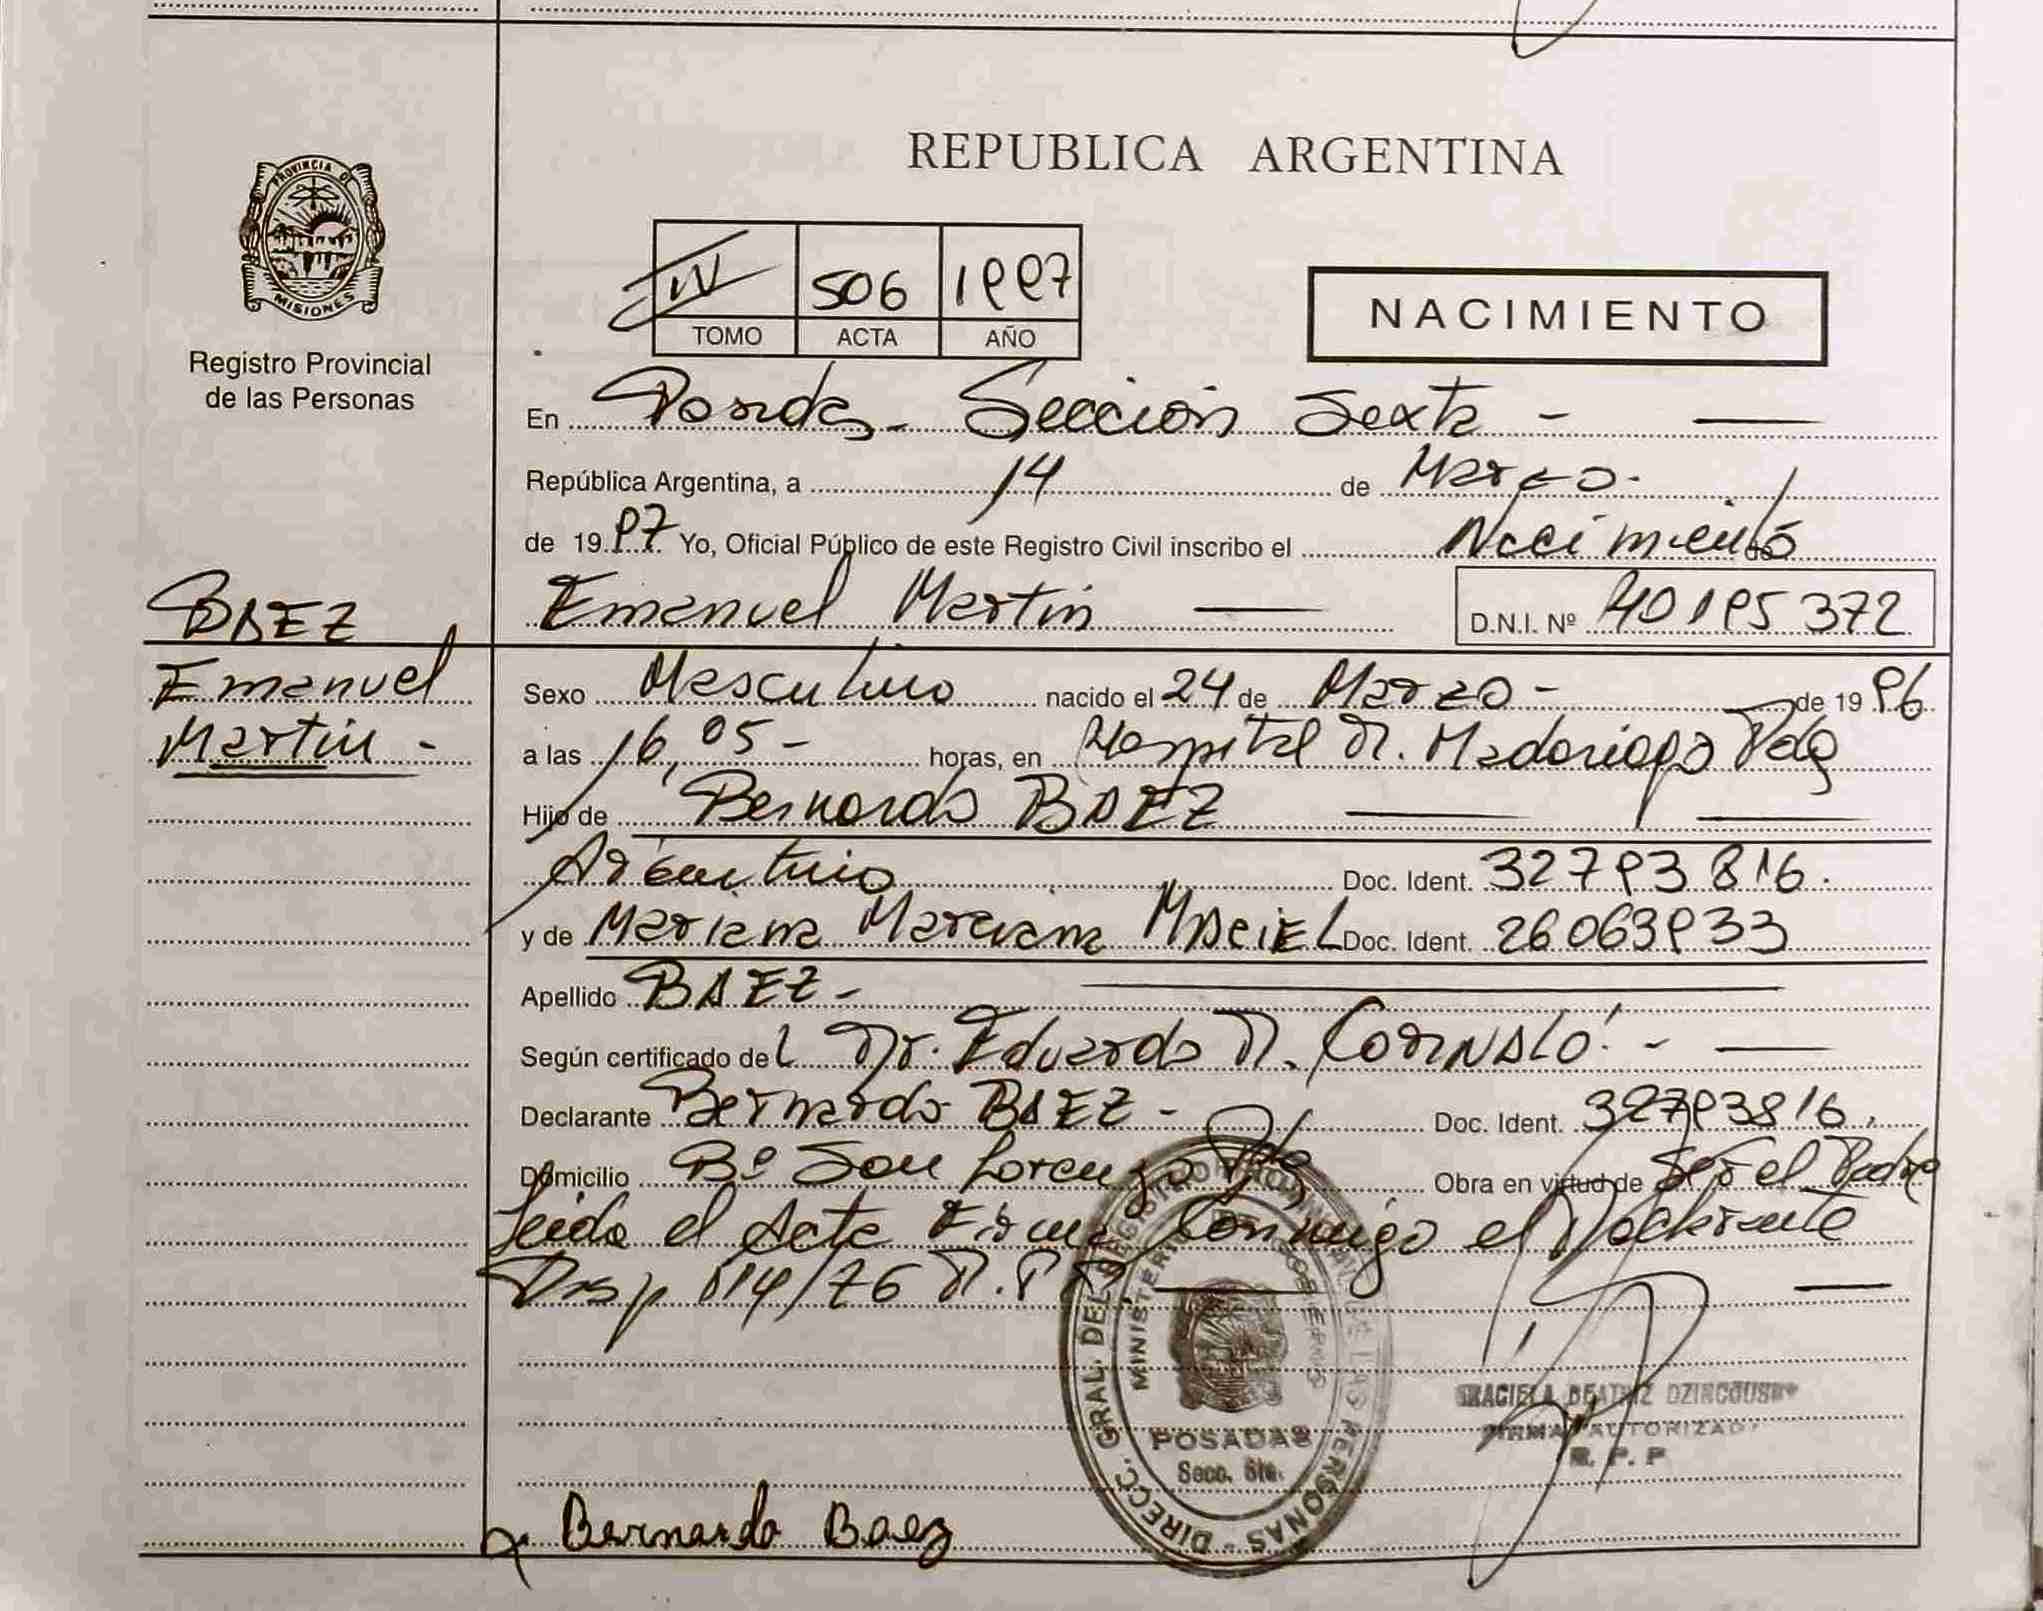 PROVINCIA DE
MISIONES
Registro Provincial
de las Personas
REPUBLICA ARGENTINA
IV 506 1997
TOMO ACTA AÑO
NACIMIENTO
En Posadas - Sección Sexta -
República Argentina, a 14 de Marzo -
de 1997 Yo, Oficial Público de este Registro Civil inscribo el Nacimiento de
BAEZ
Emanuel Martin D.N.I. Nº 40195372
Emanuel
Martin -
Sexo Masculino nacido el 24 de Marzo - de 1996
a las 16,05 - horas, en Hospital R. Madariaga Pdas
Hijo de Bernardo BAEZ
Argentino Doc. Ident. 32793816.
y de Mariana Marciana MACIEL Doc. Ident. 26063933
Apellido BAEZ -
Según certificado del Dr. Eduardo R. -
Declarante Bernardo BAEZ - Doc. Ident. 32793816.
Domicilio Bº San Lorenzo Pdas Obra en virtud de Ser el Padre
Leida el Acta Firma Conmigo el Declarante
Disp 114/76 R.P.P.
DIRECC. GRAL. DEL REGISTRO PROVINCIAL DE LAS PERSONAS
MINISTERIO DE GOBIERNO
POSADAS
Secc. 6ta.
GRACIELA BEATRIZ
FIRMA AUTORIZADA
R. P. P
Bernardo Baez